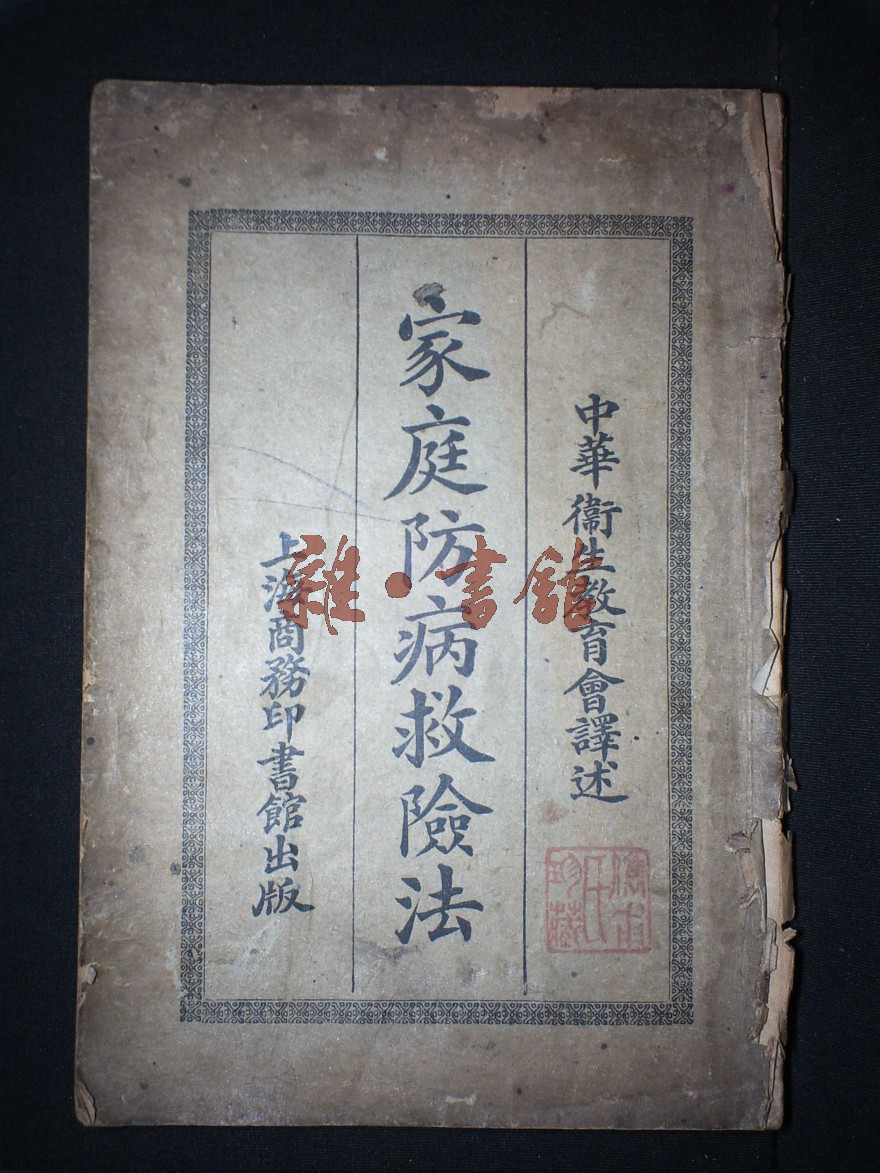 中華衞生教育會譯述
家庭防病救險法
上海商務印書館出版
雜·書館